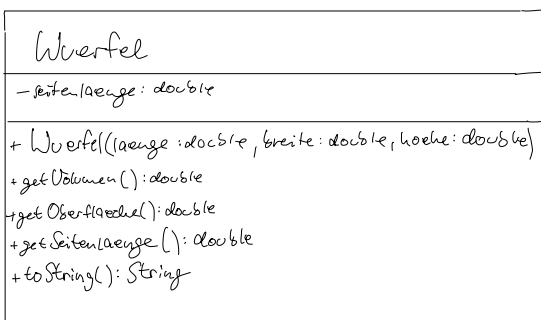 Wuerfel
- seitenlaenge: double
+ Wuerfel(laenge: double, breite: double, hoehe: double)
+ getVolumen(): double
+ getOberflaeche(): double
+ getSeitenlaenge(): double
+ toString(): String